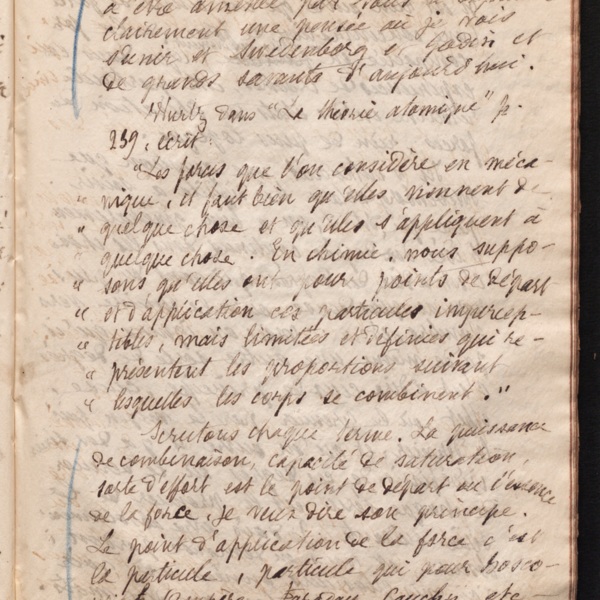 a être amenée par vous
clairement une pensée où je vois
s'unir et Swedenborg et Godin et
de grands savants d'aujourd'hui.
Wurtz dans "La théorie atomique" p.
239, écrit:
"Les forces que l'on considère en méca-
" nique, il faut bien qu'elles viennent de
" quelque chose et qu'elles s'appliquent à
" quelque chose. En chimie, nous suppo-
" sons qu'elles ont pour points de départ
" et d'application ces particules impercep-
" tibles, mais limitées et définies qui re-
" présentent les proportions suivant
" lesquelles les corps se combinent."
Scrutons chaque terme. La puissance
de combinaison, capacité de saturation,
sorte d'effort est le point de départ ou l'essence
de la force, je veux dire son principe.
Le point d'application de la force c'est
la particule, particule qui pour Bosco-
Ampère, Faraday, Cauchy, etc-